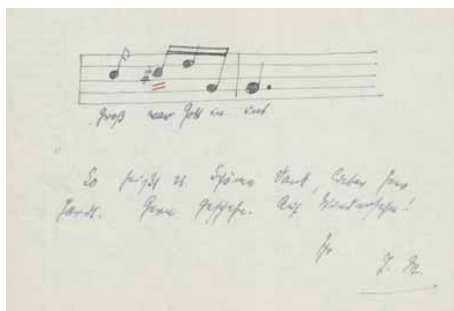 Groß war Gott in uns
So heißt es. Schönen Dank, lieber Herr
Gern geschehn. Auf Wiedersehn!
Ihr
J. M.